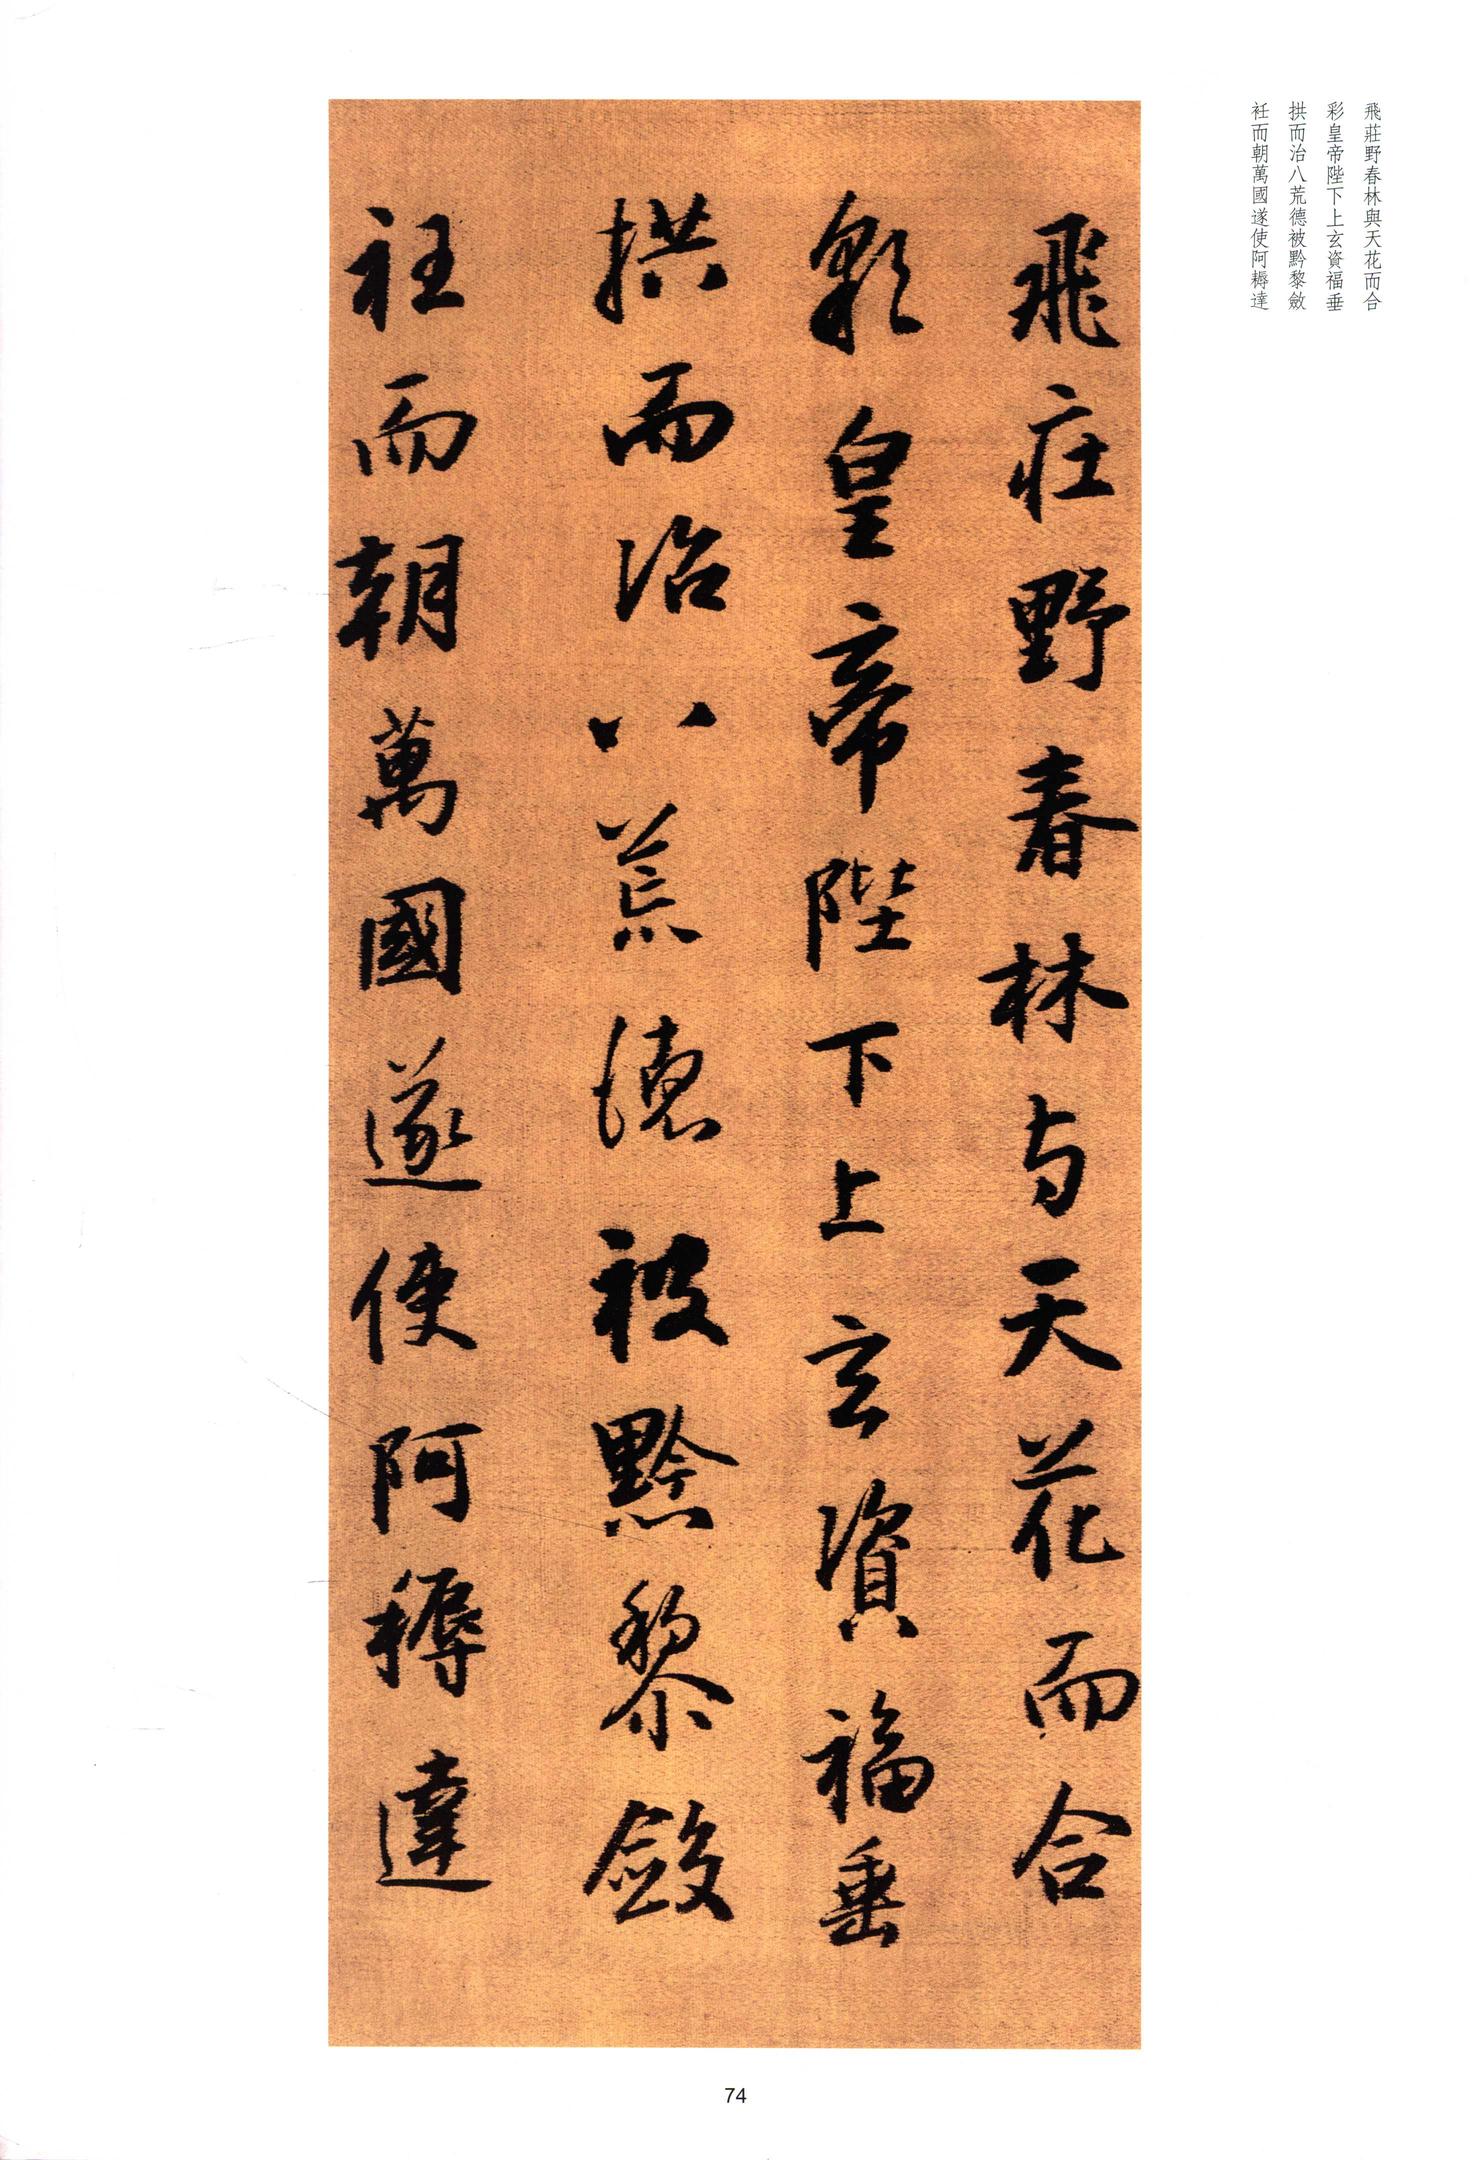 飛莊野春林與天花而合
彩皇帝陛下上玄資福垂
拱而治八荒德被黔黎斂
衽而朝萬國遂使阿耨達
飛庄野春林与天花而合
彩皇帝陛下上玄資福垂
拱而治八荒德被黔黎斂
衽而朝萬國遂使阿耨達
74